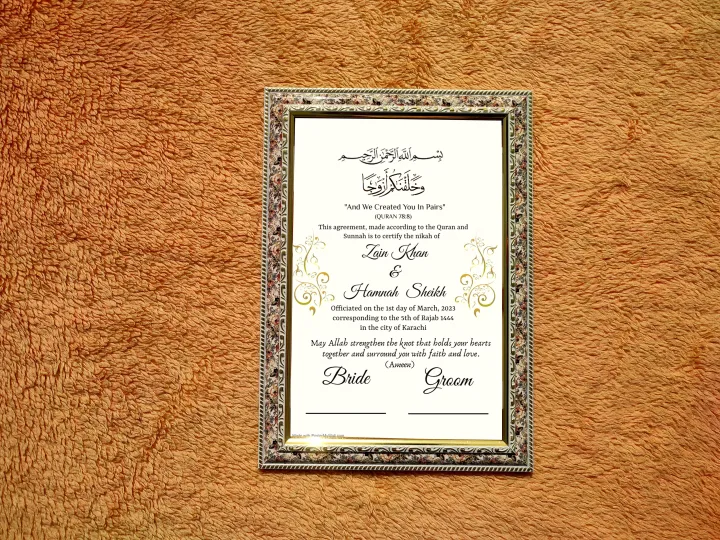 بسم الله الرحمن الرحيم
وخلقنكم أزوجا
"And We Created You In Pairs"
(QURAN 78:8)
This agreement, made according to the Quran and
Sunnah is to certify the nikah of
Zain Khan
&
Hamnah Sheikh
Officiated on the 1st day of March, 2023
corresponding to the 5th of Rajab 1444
in the city of Karachi
May Allah strengthen the knot that holds your hearts
together and surround you with faith and love.
(Ameen)
Bride Groom